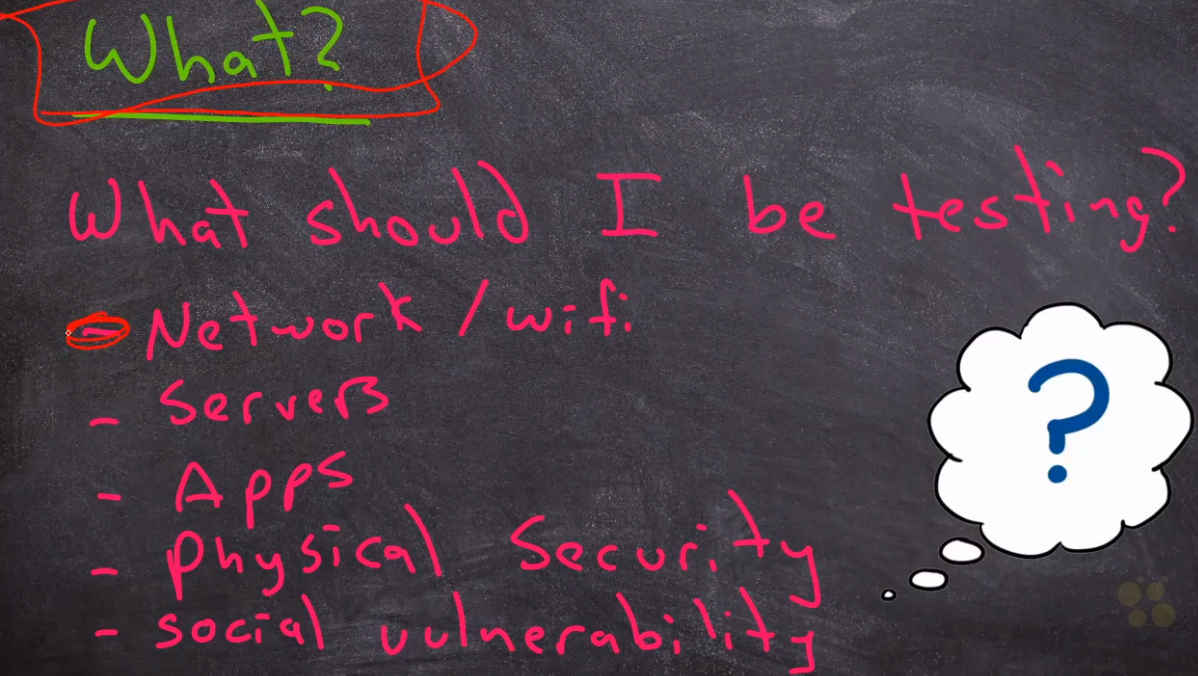 What?
What should I be testing?
- Network / wifi
- Servers
- Apps
- physical Security
- social vulnerability
?